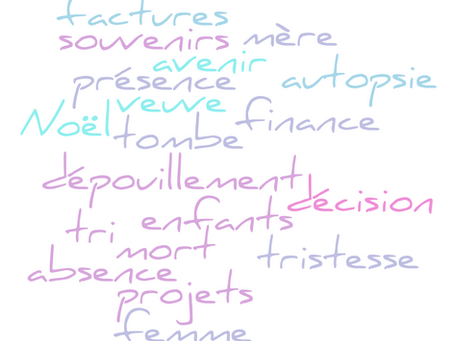 factures
souvenirs mère
avenir
présence autopsie
veuve
Noël finance
tombe
dépouillement
décision
tri enfants
mort tristesse
absence
projets
femme